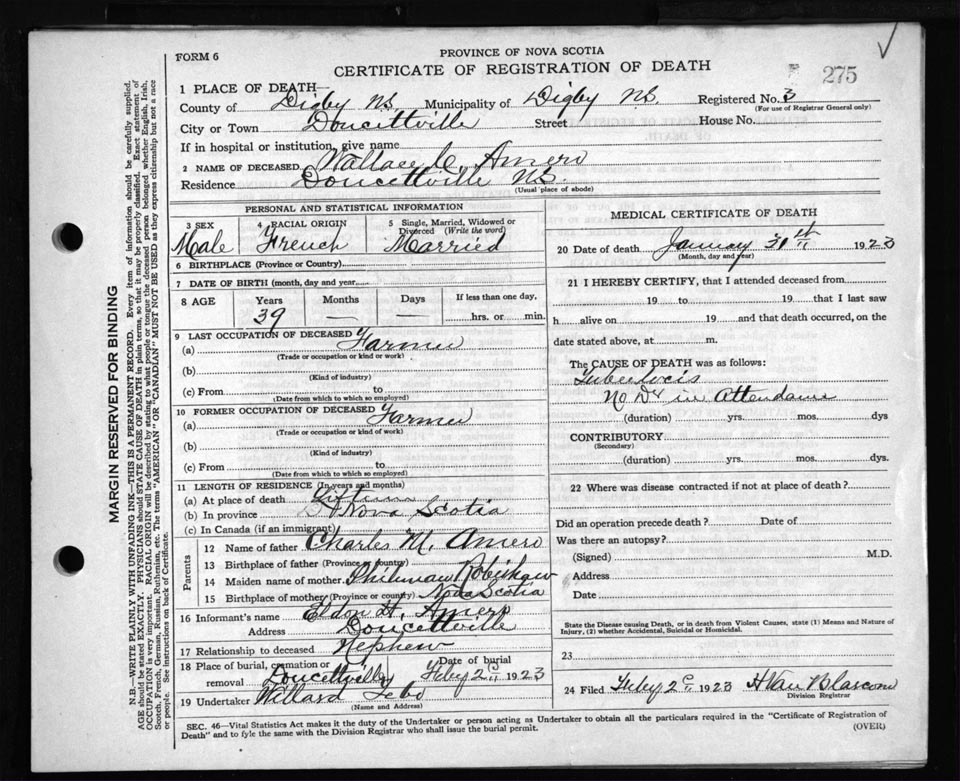 PROVINCE OF NOVA SCOTIA
FORM 6
CERTIFICATE OF REGISTRATION OF DEATH
275
1 PLACE OF DEATH
County of Digby N.S. Municipality of Digby N.S. Registered No. 3
(For use of Registrar General only)
City or Town Doucettville Street House No.
If in hospital or institution, give name
2 NAME OF DECEASED Wallace Amero
Residence Doucettville N.S.
(Usual place of abode)
PERSONAL AND STATISTICAL INFORMATION
3 SEX Male
4 RACIAL ORIGIN French
5 Single, Married, Widowed or Divorced (Write the word) Married
6 BIRTHPLACE (Province or Country)
7 DATE OF BIRTH (month, day and year)
8 AGE Years 39 Months — Days — If less than one day, hrs. or min.
9 LAST OCCUPATION OF DECEASED
(a) Farmer
(Trade or occupation or kind or work)
(b)
(Kind of industry)
(c) From to
(Date from which to which so employed)
10 FORMER OCCUPATION OF DECEASED
(a) Farmer
(Trade or occupation or kind of work)
(b)
(Kind of industry)
(c) From to
(Date from which to which so employed)
11 LENGTH OF RESIDENCE (In years and months)
(a) At place of death Liftime
(b) In province Nova Scotia
(c) In Canada (if an immigrant)
Parents
12 Name of father Charles M. Amero
13 Birthplace of father (Province or country)
14 Maiden name of mother
15 Birthplace of mother (Province or country) Nova Scotia
16 Informant's name Eldon H. Amero
Address Doucettville
17 Relationship to deceased Nephew
18 Place of burial, cremation or removal Doucettville Date of burial Feby 2 1923
19 Undertaker Willard
(Name and Address)
MEDICAL CERTIFICATE OF DEATH
20 Date of death January 31th 1923
(Month, day and year)
21 I HEREBY CERTIFY, that I attended deceased from
19 to 19 that I last saw
h alive on 19 and that death occurred, on the
date stated above, at m.
The CAUSE OF DEATH was as follows:
Tuberlocis
No Dr in Attendance
(duration) yrs. mos. dys
CONTRIBUTORY
(Secondary)
(duration) yrs. mos. dys.
22 Where was disease contracted if not at place of death?
Did an operation precede death? Date of
Was there an autopsy?
(Signed) M.D.
Address
Date
State the Disease causing Death, or in death from Violent Causes, state (1) Means and Nature of
Injury, (2) whether Accidental, Suicidal or Homicidal.
23
24 Filed Feby 2 1923 H Van Blarcom
Division Registrar
SEC. 46—Vital Statistics Act makes it the duty of the Undertaker or person acting as Undertaker to obtain all the particulars required in the "Certificate of Registration of
Death" and to fyle the same with the Division Registrar who shall issue the burial permit.
(OVER)
MARGIN RESERVED FOR BINDING
N.B.—WRITE PLAINLY WITH UNFADING INK—THIS IS A PERMANENT RECORD. Every item of information should be carefully supplied.
AGE should be stated EXACTLY. PHYSICIANS should STATE CAUSE OF DEATH in plain terms, so that it may be properly classified. Exact statement of
OCCUPATION is very important. RACIAL ORIGIN will be described by stating to what people or tongue the deceased person belonged whether English, Irish,
Scotch, French, German, Russian, Ruthenian, etc. The terms "AMERICAN" OR "CANADIAN" MUST NOT BE USED as they express citizenship but not a race
or people. See instructions on back of Certificate.